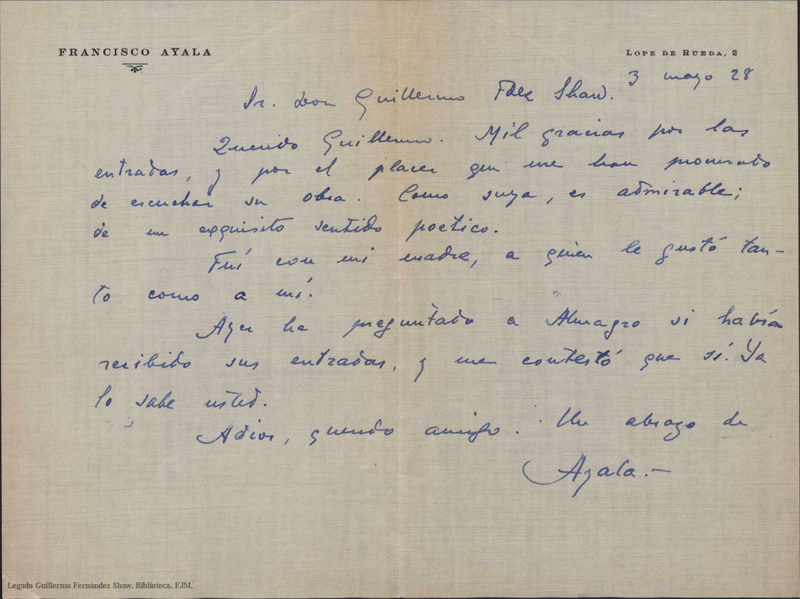 FRANCISCO AYALA
LOPE DE RUEDA, 2
3 mayo 28
Sr. Don Guillermo Fdez Shaw.
Querido Guillermo. Mil gracias por las
entradas, y por el placer que me han procurado
de escuchar su obra. Como suya, es admirable;
de un exquisito sentido poetico.
Fuí con mi madre, a quien le gustó tan-
to como a mí.
Ayer he preguntado a Almagro si habían
recibido sus entradas, y me contestó que sí. Ya
lo sabe usted.
Adios, querido amigo. Un abrazo de
Ayala.-
Legado Guillermo Fernández Shaw. Biblioteca. FJM.